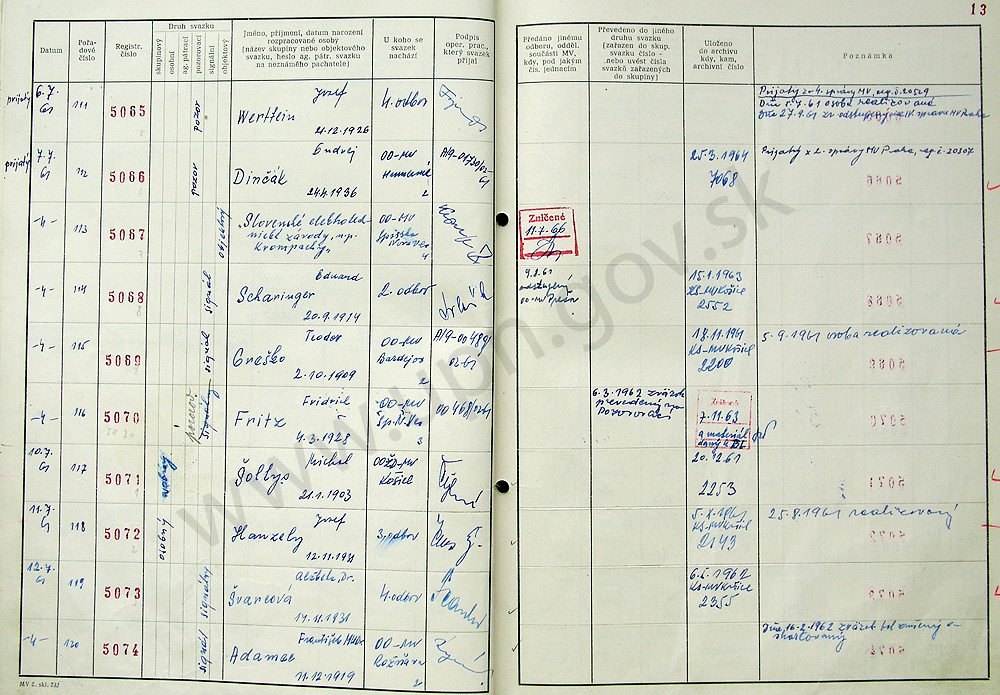 13
Datum
Pořa-
dové
číslo
Registr.
číslo
Druh svazku
skupinový
osobní
ag. pátrací
pozorovací
signální
objektový
Jméno, příjmení, datum narození
rozpracované osoby
(název skupiny nebo objektového
svazku, heslo ag. pátr. svazku
na neznámého pachatele)
U koho se
svazek
nachází
Podpis
oper. prac.,
který svazek
přijal
Předáno jinému
odboru, odděl.
součásti MV,
kdy, pod jakým
čís. jednacím
Převedeno do jiného
druhu svazku
(zařazen do skup.
svazku číslo -
nebo uvést čísla
svazků zařazených
do skupiny)
Uloženo
do archivu
kdy, kam,
archivní číslo
Poznámka
prijatý
6.7.
61
111
5065
pozor
Jozef
Wertlein
21.12.1926
4. odbor
Prijatý zo 4. správy MV, reg. č. 20529
Dňa 5.7.61 osoba realizovaná
prijatý
7.7.
61
112
5066
pozor
Ondrej
Dinčák
24.4.1936
OO-MV
Humenné
2
25.3.1964
7068
Prijatý z 2. správy MV Praha, reg. č. 20307
-4-
113
5067
objektový
"Slovenské elektroted-
nické závody, n.p.
Krompachy"
OO-MV
Spišská
N. Ves
4
Zničené
11.7.66
-4-
114
5068
signál
Eduard
Scharinger
20.9.1914
2. odbor
9.8.61
odstúpený
OO-MV Prešov
15.1.1963
KS-MV Košice
2552
-4-
115
5069
signál
Teodor
Greško
2.10.1909
OO-MV
Bardejov
2
18.11.1961
KS-MV Košice
2200
5.9.1961 osoba realizovaná
-4-
116
5070
signálny
Fridrich
Fritz
4.3.1928
OO-MV
Sp. N. Ves
3
6.3.1962 zväzok
prevedený na
Pozorovací
Zničené
7.11.63
a materiál
10.7.
61
117
5071
Michal
Šoltys
21.1.1903
Košice
20.12.61
2253
11.7.
61
118
5072
osobný
Jozef
Hanzely
12.11.1931
3. odbor
5.X.1961
KS-MV Košice
2143
25.8.1961 realizovaný
12.7.
61
119
5073
signálny
Alžbeta, Dr.
Švancová
14.11.1931
4. odbor
KS-MV Košice
2355
-4-
120
5074
signál
František
Adamec
11.12.1919
OO-MV
Rožňava
2
Dňa, 16.2.1962 zväzok bol zničený
MV č. skl. 732
www.upn.gov.sk